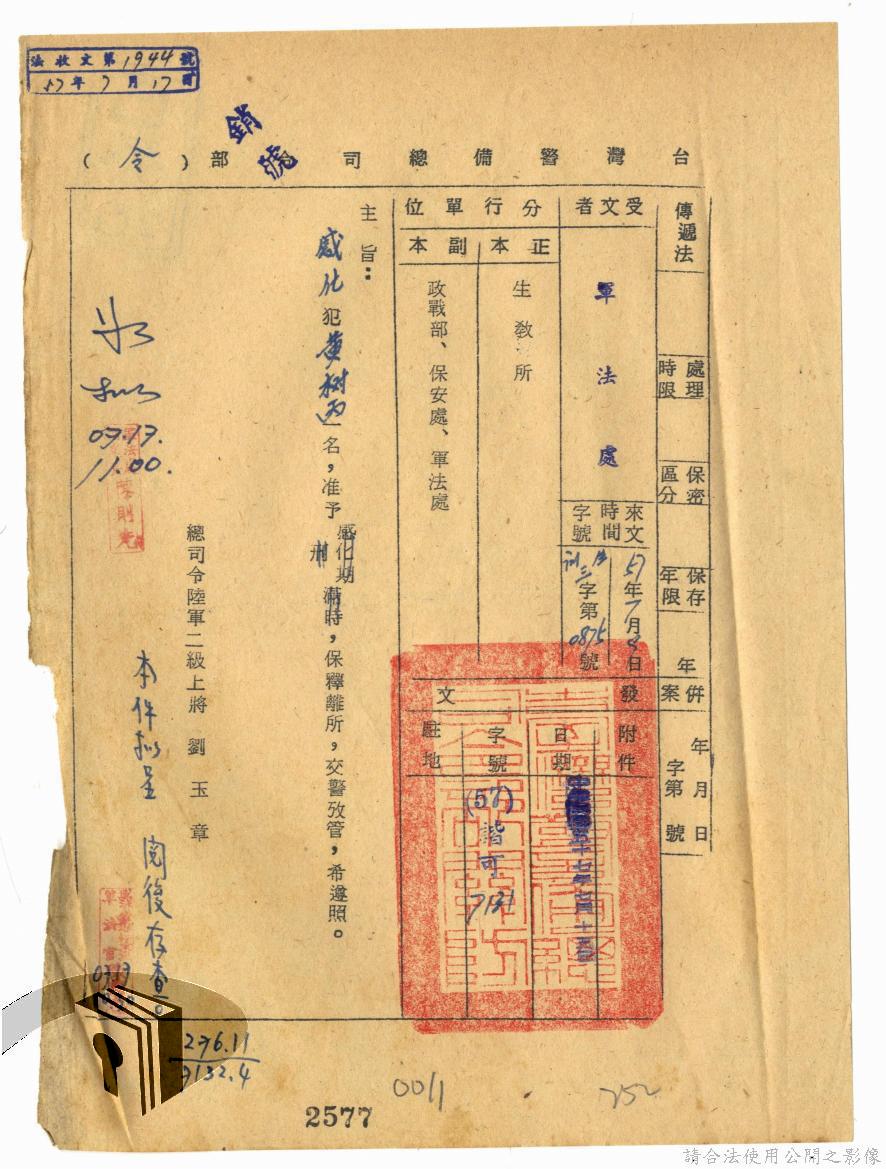 法收文第1944號
57年7月17日
銷號
台灣警備總司令部(令)
傳遞法
處理時限
保密區分
保存年限
年
併案
年月日
字第號
受文者
軍法處
來文
時間
字號
57年7月9日
字第0875號
分行單位
正本
生教所
副本
政戰部、保安處、軍法處
發文
附件
日期
五十七年七月十五日
字號
(57)諧可7131
駐地
主旨:
感化犯黃樹丙一名,准予感化期刑滿時,保釋離所,交警攷管,希遵照。
總司令陸軍二級上將劉玉章
本件擬呈閱後存查。
07.17.
11.00.
276.11
9132.4
0011
252
2577
請合法使用公開之影像